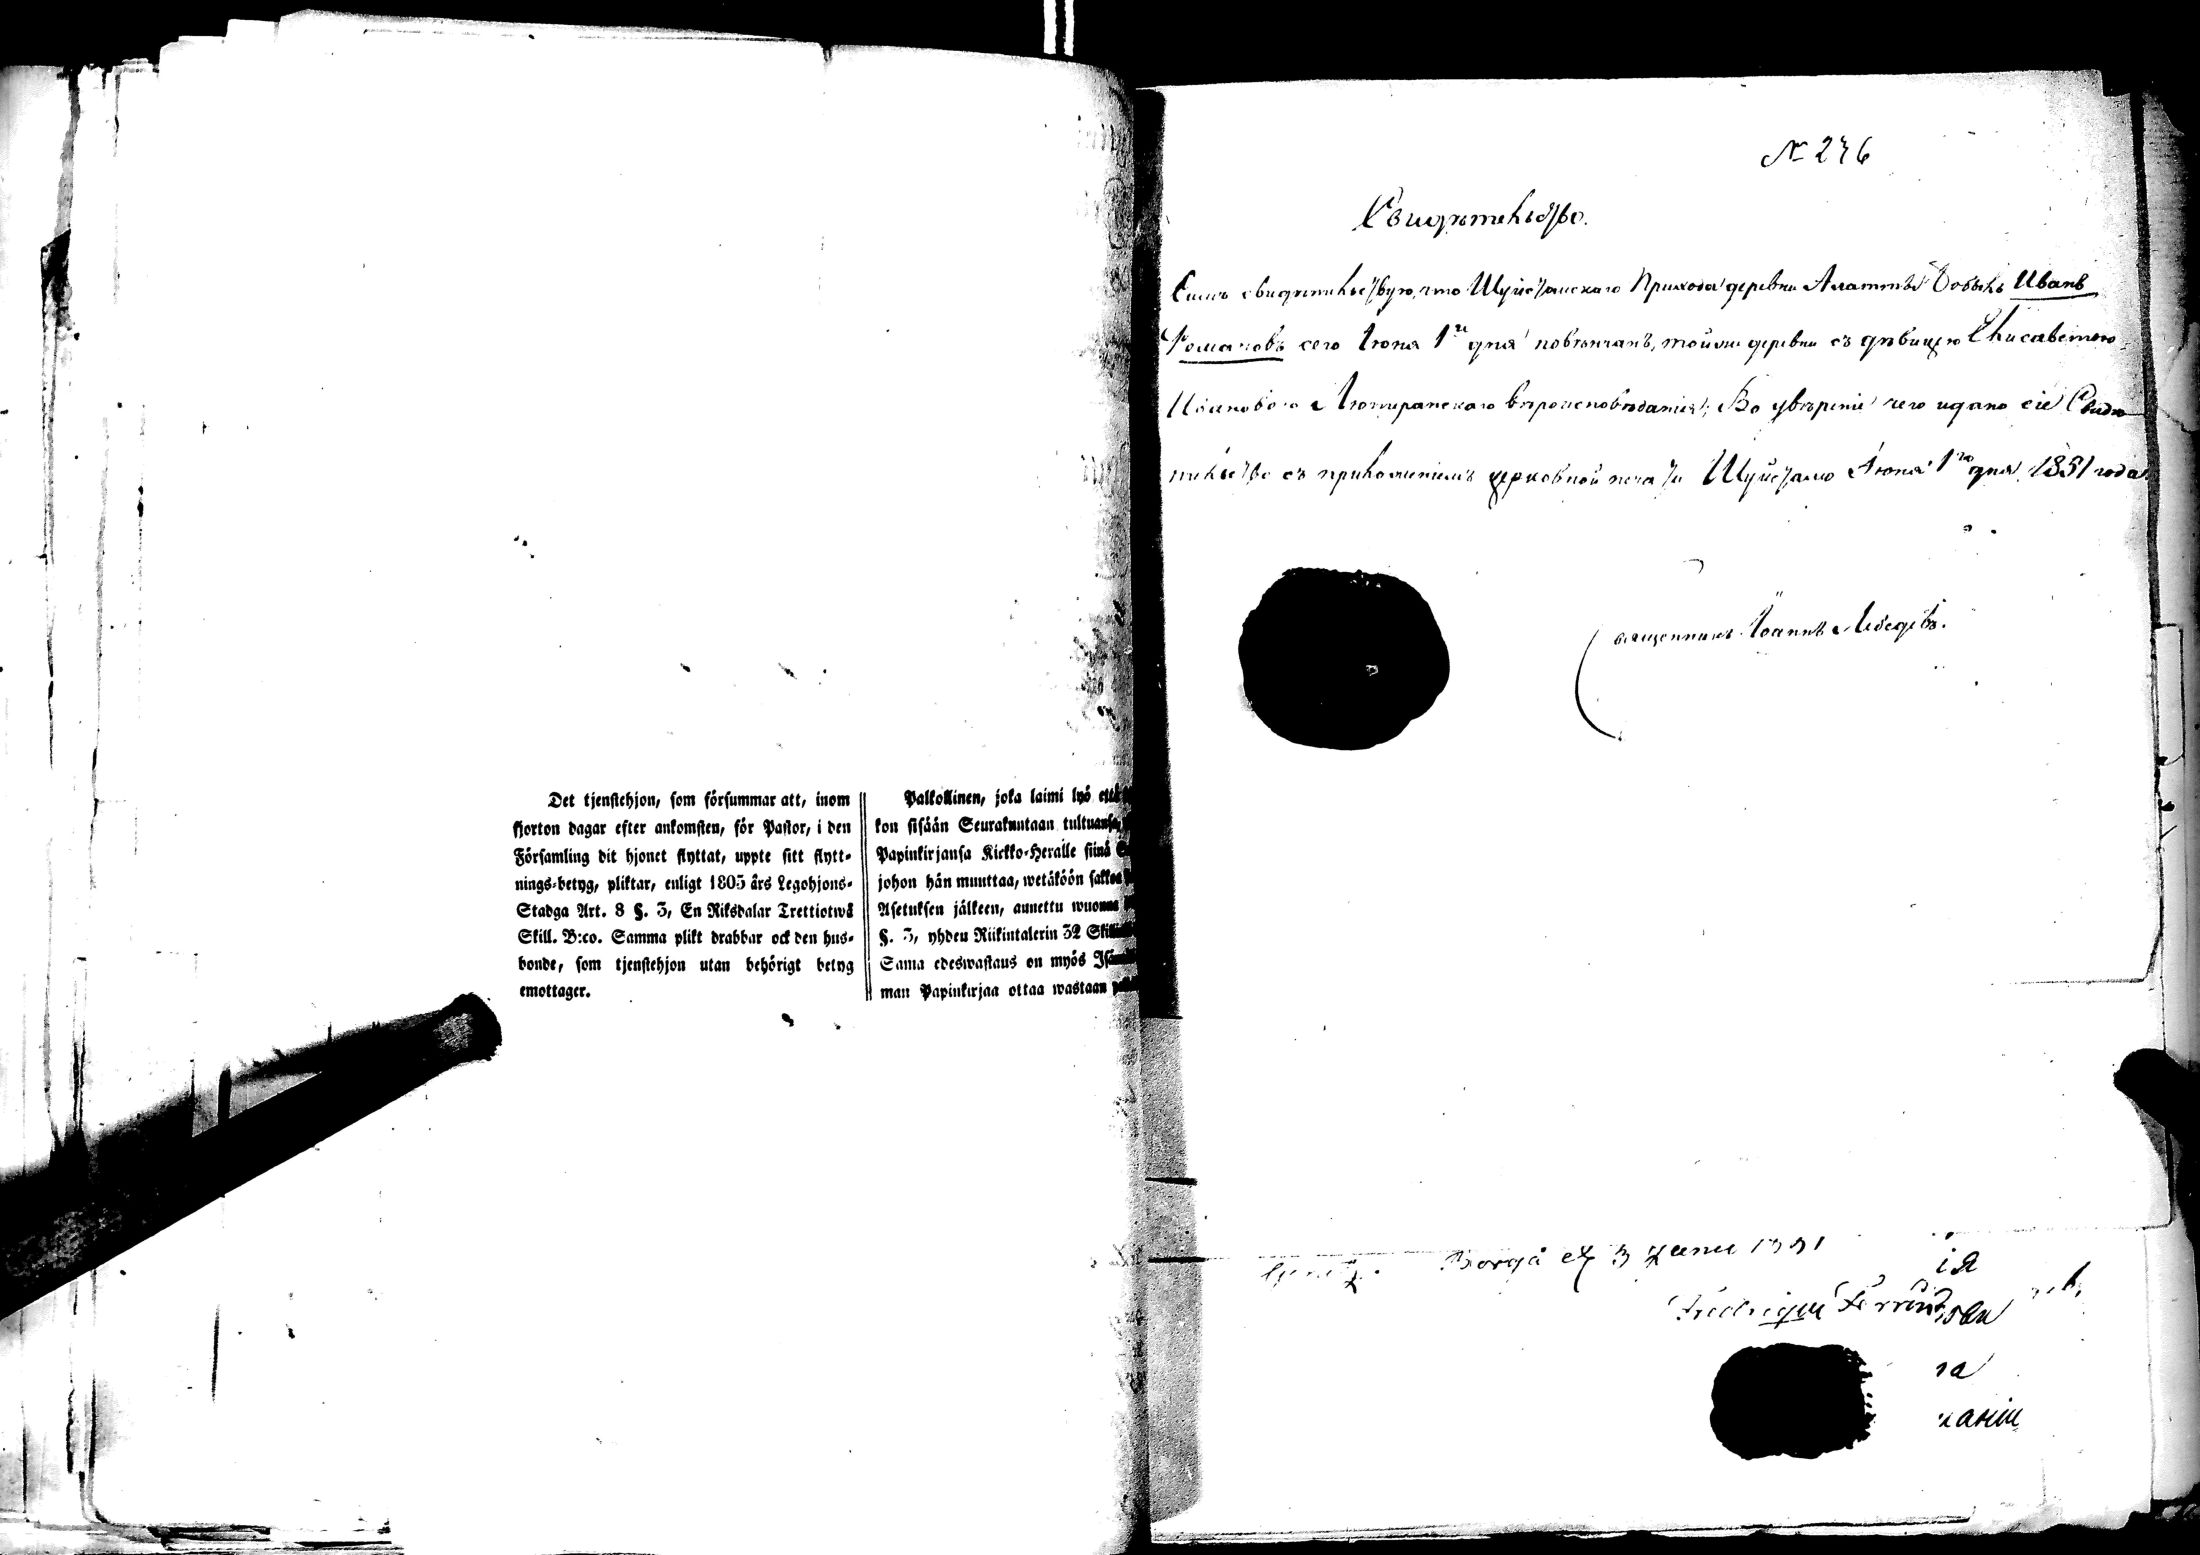 Det tjenstehjon, som försummar att, inom
fjorton dagar efter ankomsten, för Pastor, i den
Församling dit hjonet flyttat, uppte sitt flytt-
nings-betyg, pliktar, enligt 1805 års Legohjons-
Stadga Art. 8 §. 3, En Riksdalar Trettiotwå
Skill. B:co. Samma plikt drabbar ock den hus-
bonde, som tjenstehjon utan behörigt betyg
emottager.
Palkollinen, joka laimi lyö että
kon sisään Seurakuntaan tultuansa,
Papinkirjansa Kirkko-Heralle siinä
johon hän muuttaa, wetäköön sakkoa
Asetuksen jälkeen, annettu wuonna
§. 3, yhden Riikintalerin 32
Sama edeswastaus on myös
man Papinkirjaa ottaa wastaan
№ 276
Свидѣтельство.
Симъ свидѣтельствую, что Шуйстамскаго Прихода деревни Алаттѣ Бобыль Иванъ
Романовъ сего Іюня 1го дня повѣнчанъ, тойже деревни съ дѣвицею Елисаветою
Ивановою Лютеранскаго вѣроисповѣданія; Во увѣреніе чего и дано сіе Свидѣ
тельство съ приложеніемъ церковной печати Шуйстамо Іюня 1го дня 1851 года
Священникъ Іоаннъ Лебедевъ.
Borgå 3
ія
на